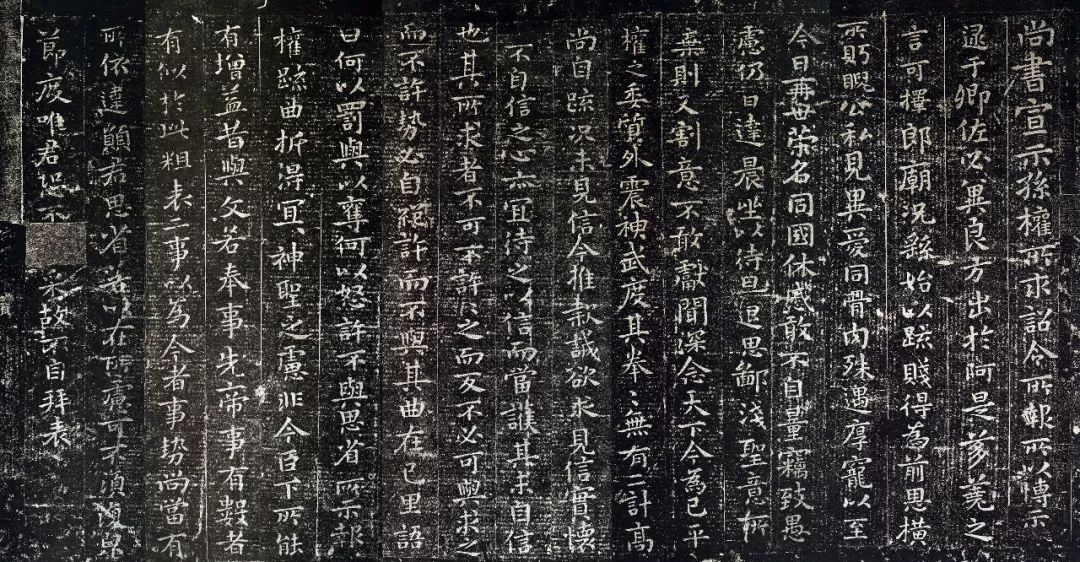 尚書宣示孫權所求詔令所報所以博示
逮于卿佐必冀良方出於阿是芻蕘之
言可擇郎廟況繇始以疏賤得為前恩橫
所眄睨公私見異愛同骨肉殊遇厚寵以至
今日再世榮名同國休慼敢不自量竊致愚
慮仍日達晨坐以待旦退思鄙淺聖意所
棄則又割意不敢獻聞深念天下今為已平
權之委質外震神武度其拳〻無有二計高
尚自疏況未見信今推款誠欲求見信實懷
不自信之心亦宜待之以信而當護其未自信
也其所求者不可不許許〻之而反不必可與求之
而不許勢必自絕許而不與其曲在己里語
曰何以罰與以奪何以怒許不與思省所示報
權疏曲折得宜神聖之慮非今臣下所能
有增益昔與文若奉事先帝事有數者
有似於此粗表二事以為今者事勢尚當有
所依違願君思省若以在所慮可不須復
節度唯君恐不采故不自拜表